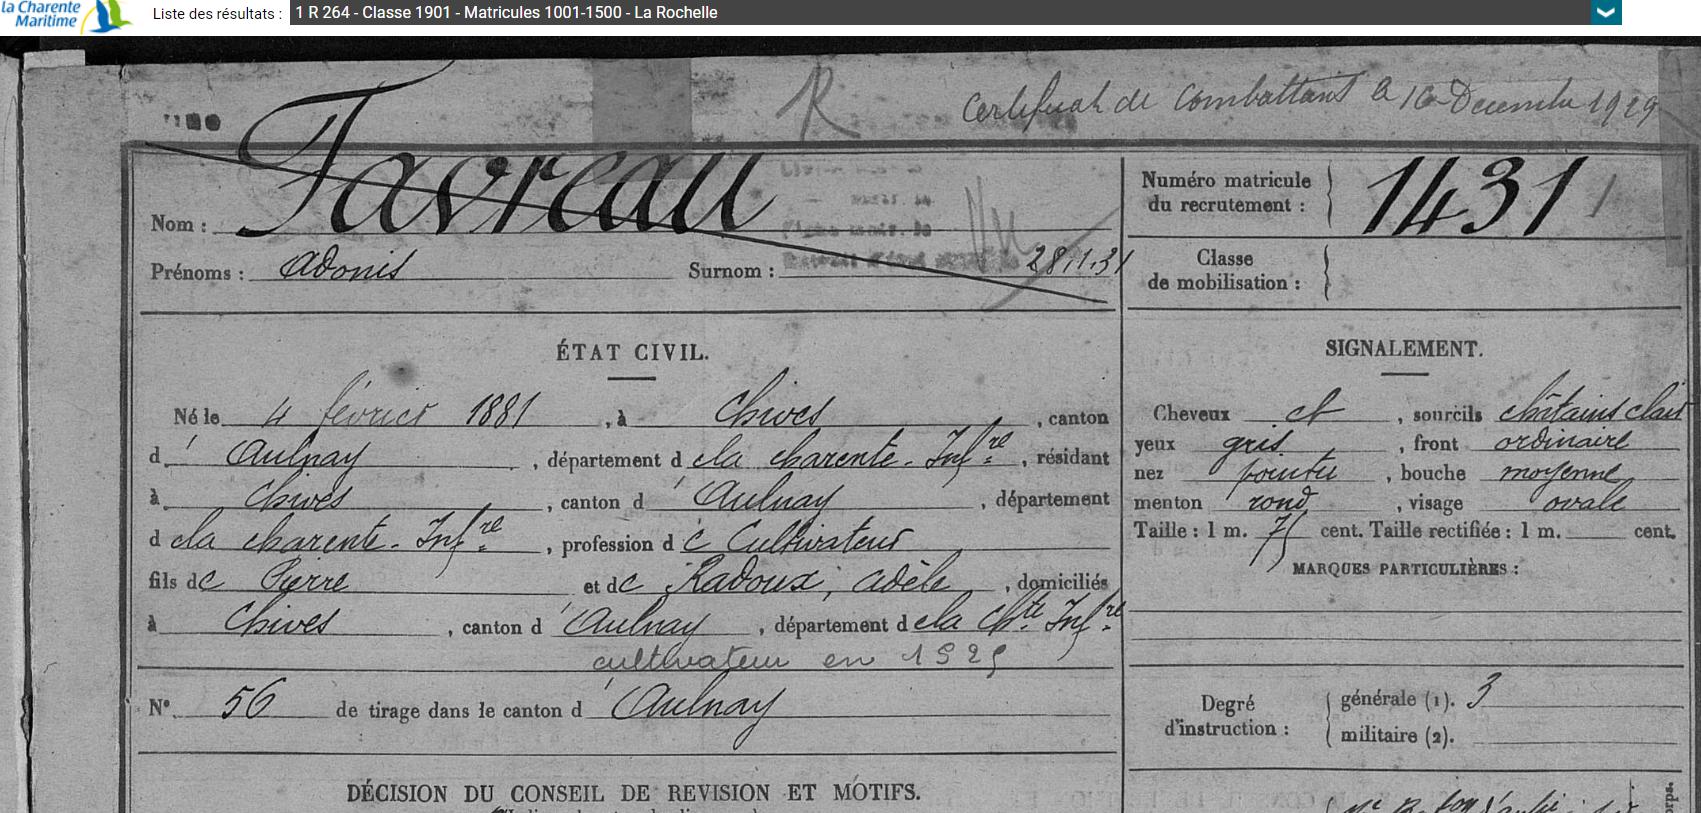 la Charente
Maritime
Liste des résultats : 1 R 264 - Classe 1901 - Matricules 1001-1500 - La Rochelle
R
Certificat de Combattant le 16 Decembre 1929
Nom : Favreau
Prénoms : Adonis Surnom : 28.1.31
Numéro matricule
du recrutement : 1431
Classe
de mobilisation :
ÉTAT CIVIL.
Né le 4 février 1881, à Chives, canton
d'Aulnay, département de la Charente-Infre, résidant
à Chives, canton d'Aulnay, département
de la Charente-Infre, profession de Cultivateur
fils de Pierre et de Radoux, Adèle, domiciliés
à Chives, canton d'Aulnay, département de la Chte Infre
cultivateur en 1925
N° 56 de tirage dans le canton d'Aulnay
SIGNALEMENT.
Cheveux et, sourcils châtains clair
yeux gris, front ordinaire
nez pointu, bouche moyenne
menton rond, visage ovale
Taille : 1 m. 75 cent. Taille rectifiée : 1 m. cent.
MARQUES PARTICULIÈRES :
Degré
d'instruction :
générale (1). 3
militaire (2).
DÉCISION DU CONSEIL DE REVISION ET MOTIFS.
corps.